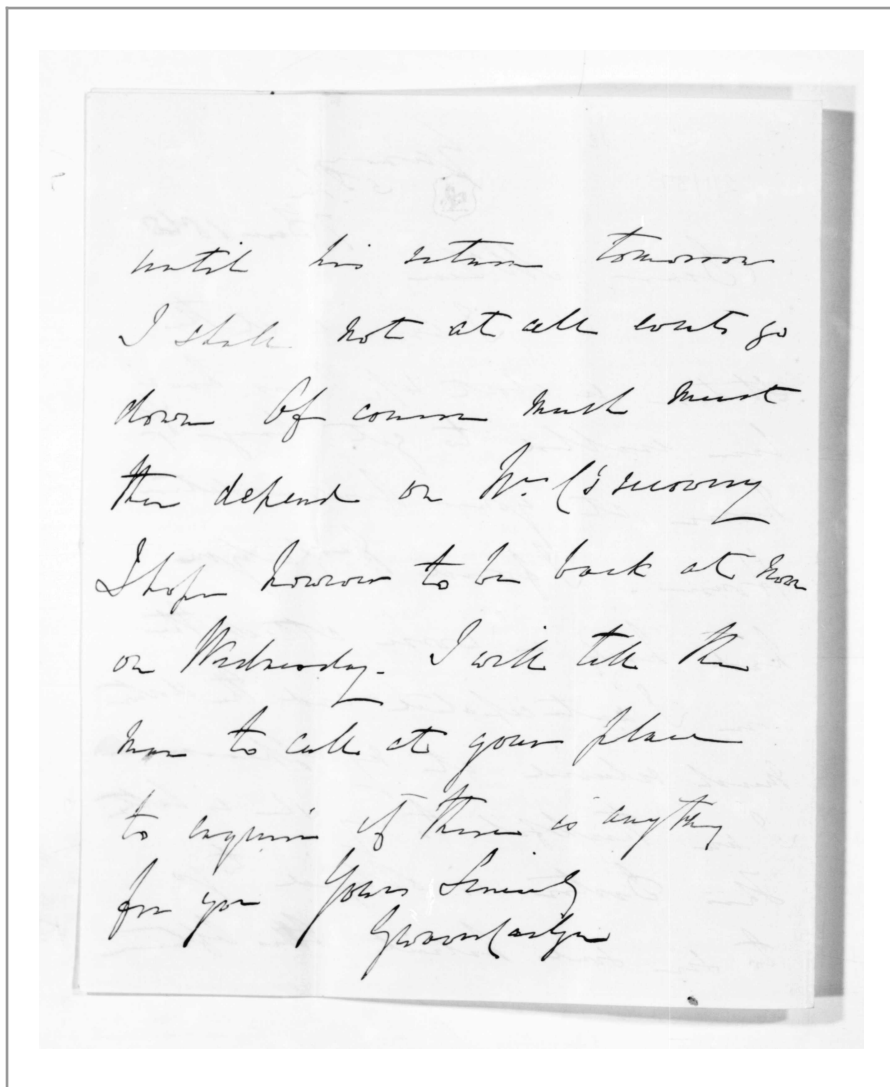 until his return tomorrow
I shall not at all events go
down Of course much must
then depend on Mr C's recovery
I hope however to be back at home
on Wednesday. I will tell the
man to call at your place
to enquire if there is anything
for you Yours Sincerely